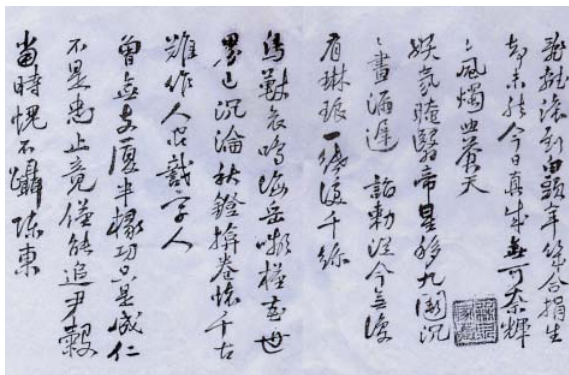 亂離滾到白頭年幾合捐生
却未然今日眞成無可奈輝
〻風燭照蒼天
妖氛晻翳帝星移九闕沉
〻晝漏遲 詔勅從今無復
有琳琅一紙淚千絲
鳥獸哀鳴海岳嚬槿花世
界已沉淪秋鐙掩卷懷千古
難作人間識字人
曾無支厦半椽功只是成仁
不是忠止竟僅能追尹穀
當時愧不躡陳東